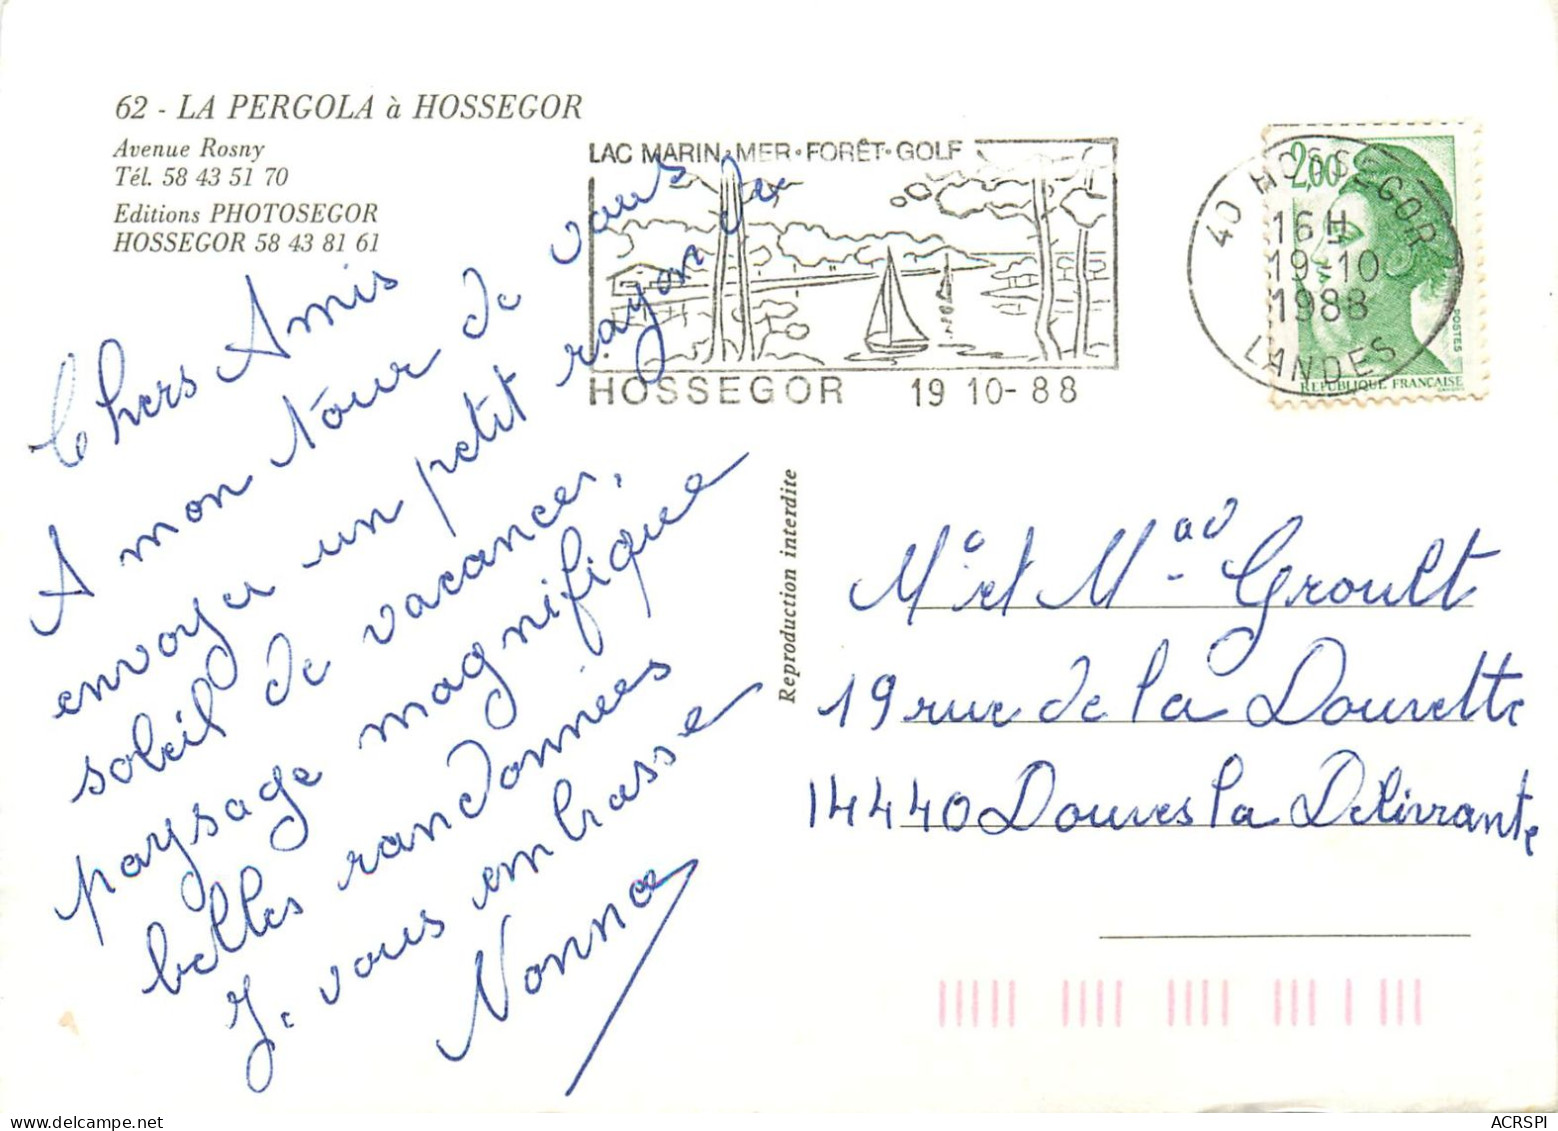 62 - LA PERGOLA à HOSSEGOR
Avenue Rosny
Tél. 58 43 51 70
Editions PHOTOSEGOR
HOSSEGOR 58 43 81 61
LAC MARIN · MER · FORÊT · GOLF
HOSSEGOR 19 10-88
40 HOSSEGOR
16H
19-10
1988
LANDES
2,00
POSTES
REPUBLIQUE FRANÇAISE
Chers Amis
A mon tour de vous
envoyer un petit rayon de
soleil de vacances,
paysage magnifique
belles randonnées
Je vous embrasse
Nonna
Reproduction interdite
Mr et Mme Groult
19 rue de la Dourette
14440 Douvres la Delivrante
ACRSPI